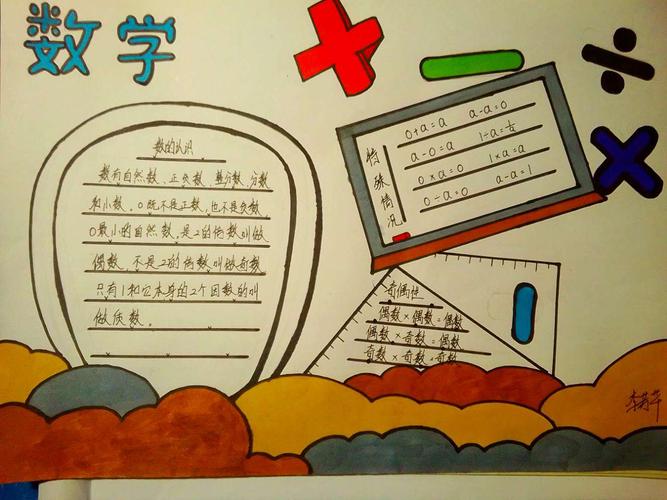 数学
数的认识
数有自然数、正负数、整分数、分数
和小数。0既不是正数,也不是负数。
0最小的自然数,是2的倍数叫做
偶数,不是2的倍数叫做奇数
只有1和它本身的2个因数的叫
做质数。
特殊情况
0+a=a a-a=0
a-0=a 1÷a=1/a
0×a=0 1×a=a
0÷a=0 a-a=1
奇偶性
偶数×偶数=偶数
偶数×奇数=偶数
奇数×奇数=奇数